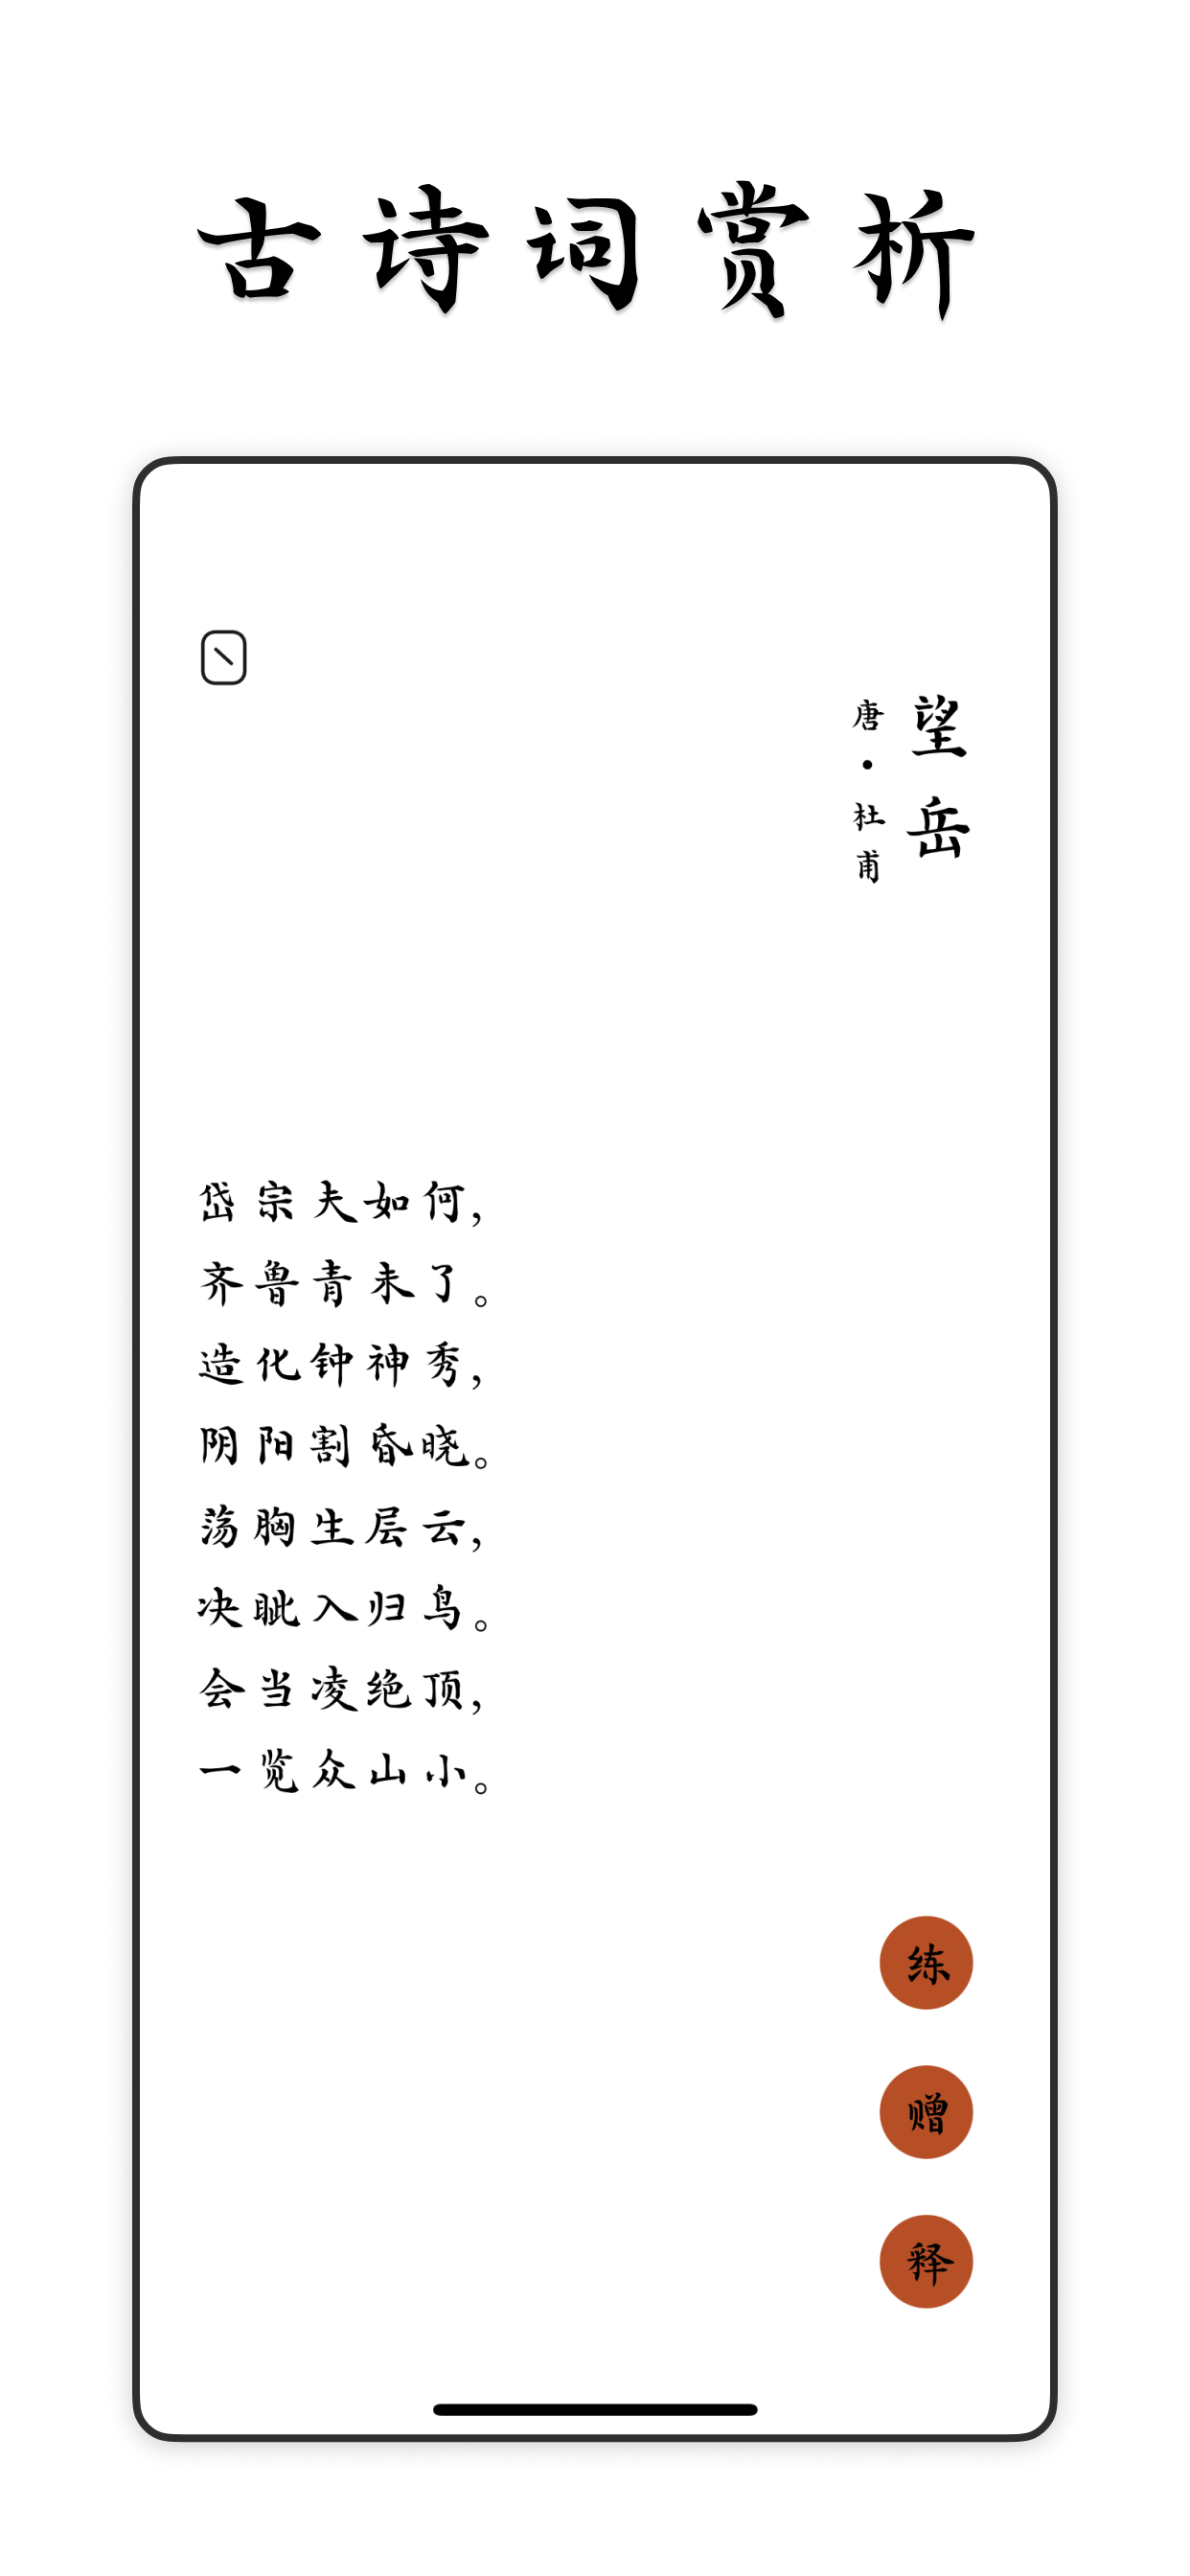 古诗词赏析
望岳
唐·杜甫
岱宗夫如何，
齐鲁青未了。
造化钟神秀，
阴阳割昏晓。
荡胸生层云，
决眦入归鸟。
会当凌绝顶，
一览众山小。
练
赠
释